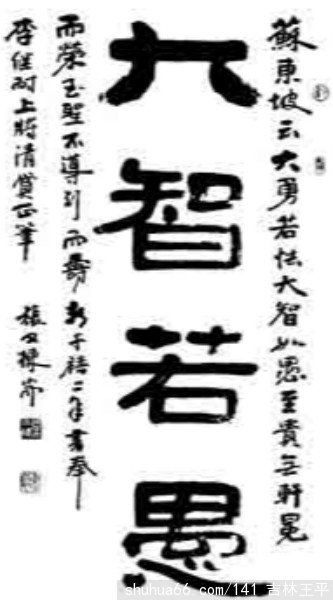 蘇東坡云大勇若怯大智如愚至貴無軒冕
大智若愚
而榮至聖不導引而壽新千禧二年書奉
李繼耐上將清賞正筆
shuhua66.com/141 吉林王平